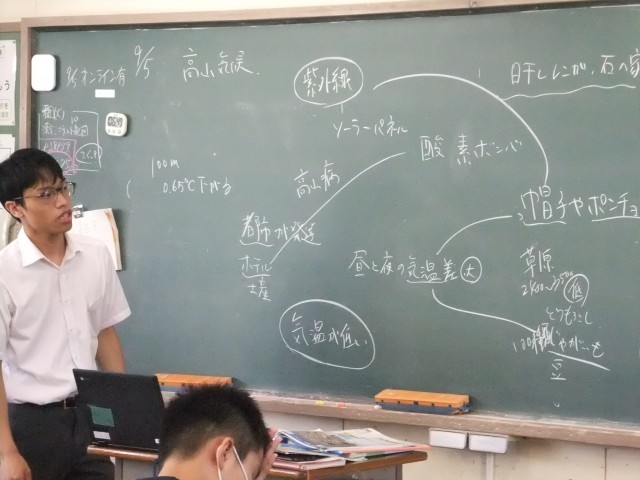 9/5 オンライン有
9/5
高山気候
紫外線
ソーラーパネル
日干しレンガ、石の家
酸素ボンベ
100m
0.65℃下がる
高山病
帽子やポンチョ
都市が発達
ホテル
土産
昼と夜の気温差 大
草原
低
とうもろこし
じゃがいも
豆
気温が低い